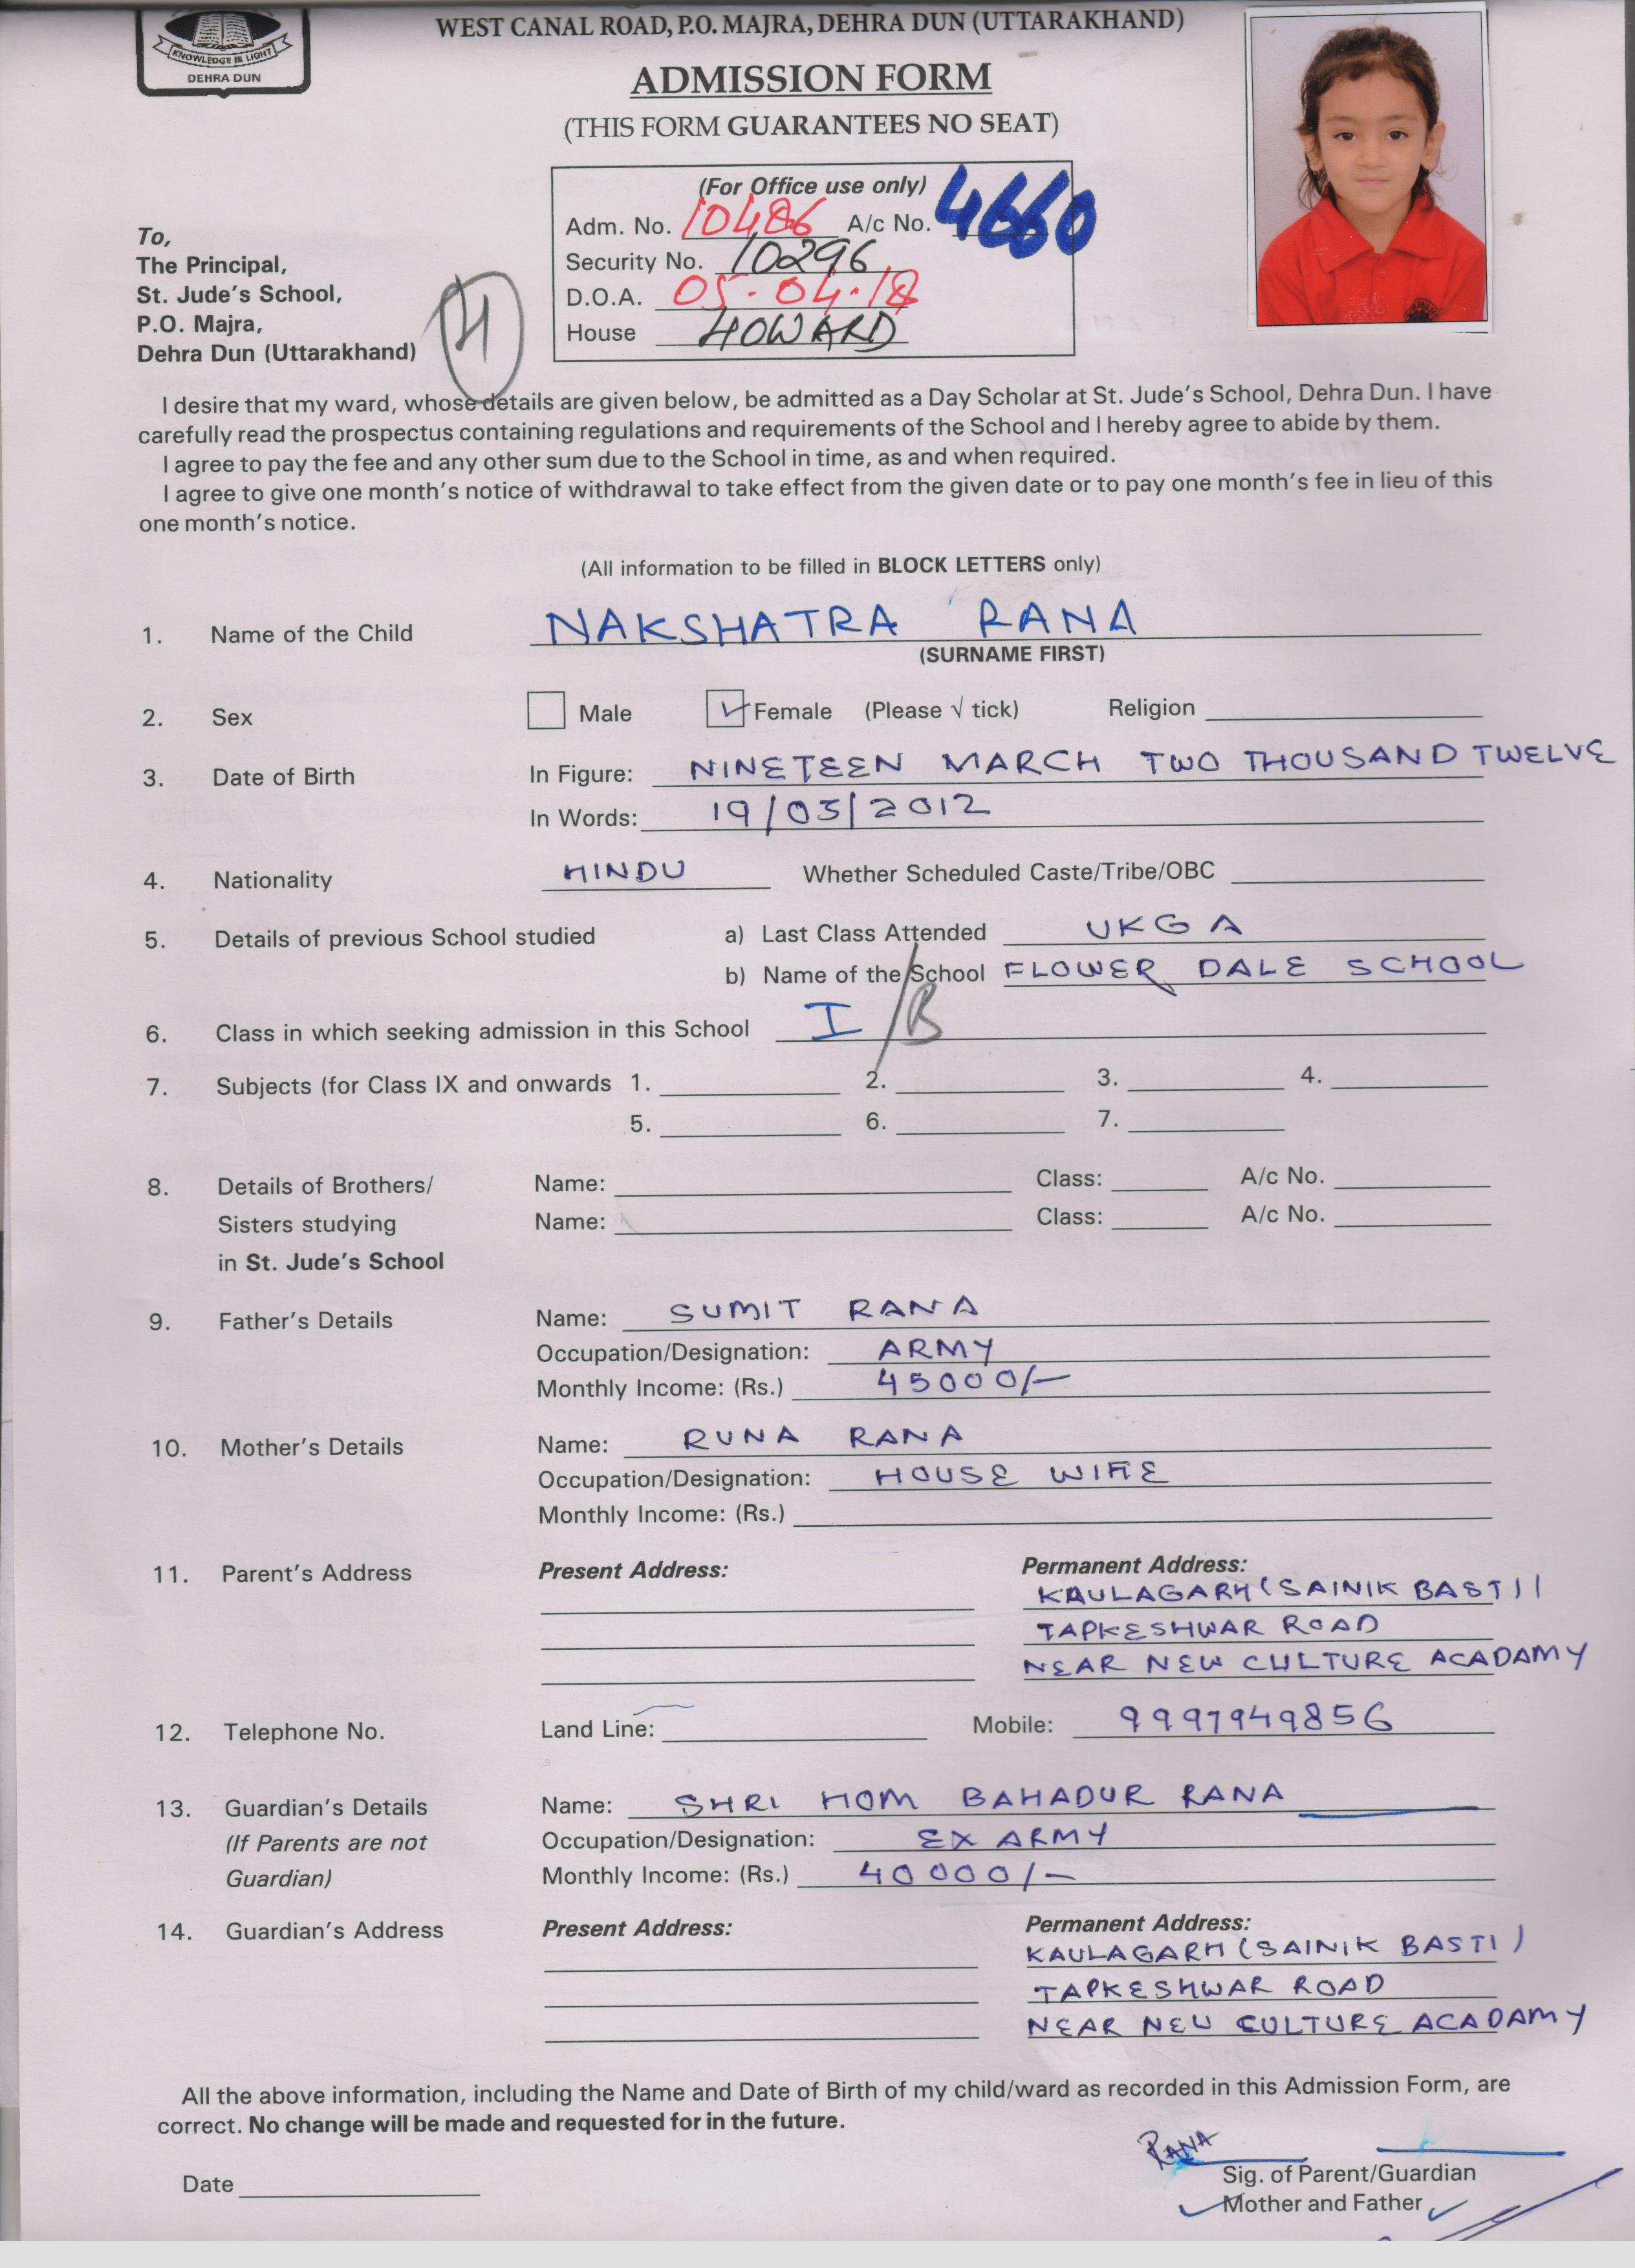 WEST CANAL ROAD, P.O. MAJRA, DEHRA DUN (UTTARAKHAND)
KNOWLEDGE IS LIGHT
DEHRA DUN
ADMISSION FORM
(THIS FORM GUARANTEES NO SEAT)
(For Office use only)
Adm. No. 10486 A/c No. 4660
Security No. 10296
D.O.A. 05-04-18
House HOWARD
To,
The Principal,
St. Jude's School,
P.O. Majra,
Dehra Dun (Uttarakhand)
I desire that my ward, whose details are given below, be admitted as a Day Scholar at St. Jude's School, Dehra Dun. I have
carefully read the prospectus containing regulations and requirements of the School and I hereby agree to abide by them.
I agree to pay the fee and any other sum due to the School in time, as and when required.
I agree to give one month's notice of withdrawal to take effect from the given date or to pay one month's fee in lieu of this
one month's notice.
(All information to be filled in BLOCK LETTERS only)
1. Name of the Child NAKSHATRA RANA
(SURNAME FIRST)
2. Sex Male Female (Please √ tick) Religion
3. Date of Birth In Figure: NINETEEN MARCH TWO THOUSAND TWELVE
In Words: 19/03/2012
4. Nationality HINDU Whether Scheduled Caste/Tribe/OBC
5. Details of previous School studied a) Last Class Attended UKG A
b) Name of the School FLOWER DALE SCHOOL
6. Class in which seeking admission in this School I /B
7. Subjects (for Class IX and onwards 1. 2. 3. 4.
5. 6. 7.
8. Details of Brothers/ Name: Class: A/c No.
Sisters studying Name: Class: A/c No.
in St. Jude's School
9. Father's Details Name: SUMIT RANA
Occupation/Designation: ARMY
Monthly Income: (Rs.) 45000/-
10. Mother's Details Name: RUNA RANA
Occupation/Designation: HOUSE WIFE
Monthly Income: (Rs.)
11. Parent's Address Present Address: Permanent Address:
KAULAGARH (SAINIK BASTI)
TAPKESHWAR ROAD
NEAR NEW CULTURE ACADAMY
12. Telephone No. Land Line: Mobile: 9997949856
13. Guardian's Details Name: SHRI HOM BAHADUR RANA
(If Parents are not Occupation/Designation: EX ARMY
Guardian) Monthly Income: (Rs.) 40000/-
14. Guardian's Address Present Address: Permanent Address:
KAULAGARH (SAINIK BASTI)
TAPKESHWAR ROAD
NEAR NEW CULTURE ACADAMY
All the above information, including the Name and Date of Birth of my child/ward as recorded in this Admission Form, are
correct. No change will be made and requested for in the future.
RANA
Date Sig. of Parent/Guardian
Mother and Father